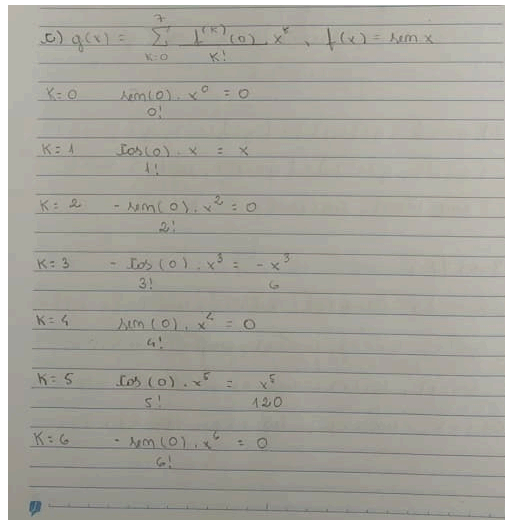 c) g(x) = 7 Σ K=0 f^(K)(0) / K! x^K , f(x) = sen x
K=0 sen(0) . x^0 = 0
0!
K=1 cos(0) . x = x
1!
K=2 - sen(0) . x^2 = 0
2!
K=3 - cos(0) . x^3 = - x^3
3! 6
K=4 sen(0) . x^4 = 0
4!
K=5 cos(0) . x^5 = x^5
5! 120
K=6 - sen(0) . x^6 = 0
6!